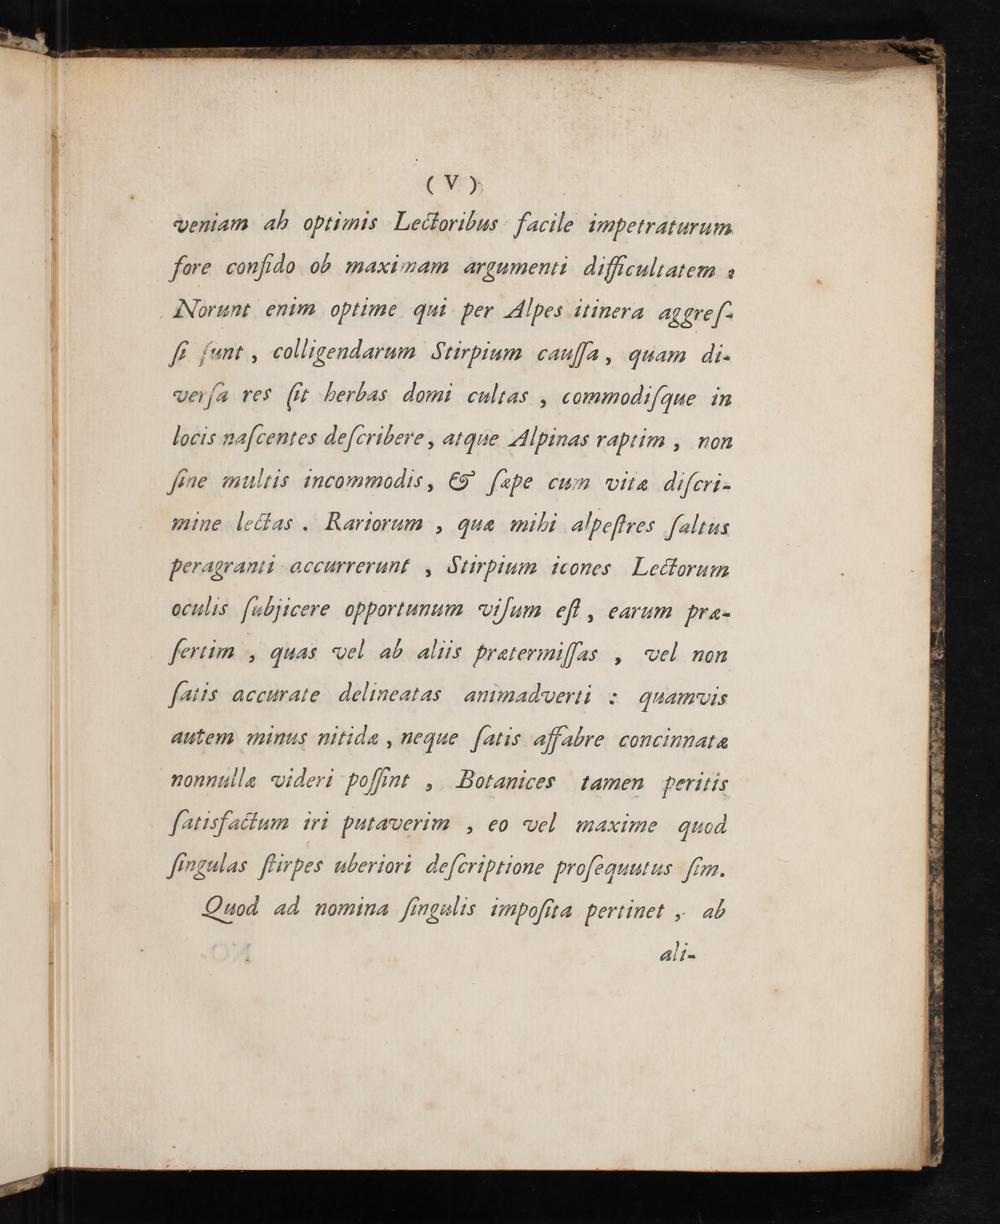 ( V )
veniam ab optimis Lectoribus facile impetraturum
fore confido ob maximam argumenti difficultatem .
Norunt enim optime qui per Alpes itinera aggreſ-
ſi ſunt , colligendarum Stirpium cauſſa , quam di-
verſa res ſit herbas domi cultas , commodiſque in
locis naſcentes deſcribere , atque Alpinas raptim , non
ſine multis incommodis , & ſæpe cum vitæ diſcri-
mine lectas . Rariorum , quæ mihi alpeſtres ſaltus
peragranti accurrerunt , Stirpium icones Lectorum
oculis ſubjicere opportunum viſum eſt , earum præ-
ſertim , quas vel ab aliis prætermiſſas , vel non
ſatis accurate delineatas animadverti : quamvis
autem minus nitidæ , neque ſatis affabre concinnatæ
nonnullæ videri poſſint , Botanices tamen peritis
ſatisfactum iri putaverim , eo vel maxime quod
ſingulas ſtirpes uberiori deſcriptione proſequutus ſim.
Quod ad nomina ſingulis impoſita pertinet , ab
ali-